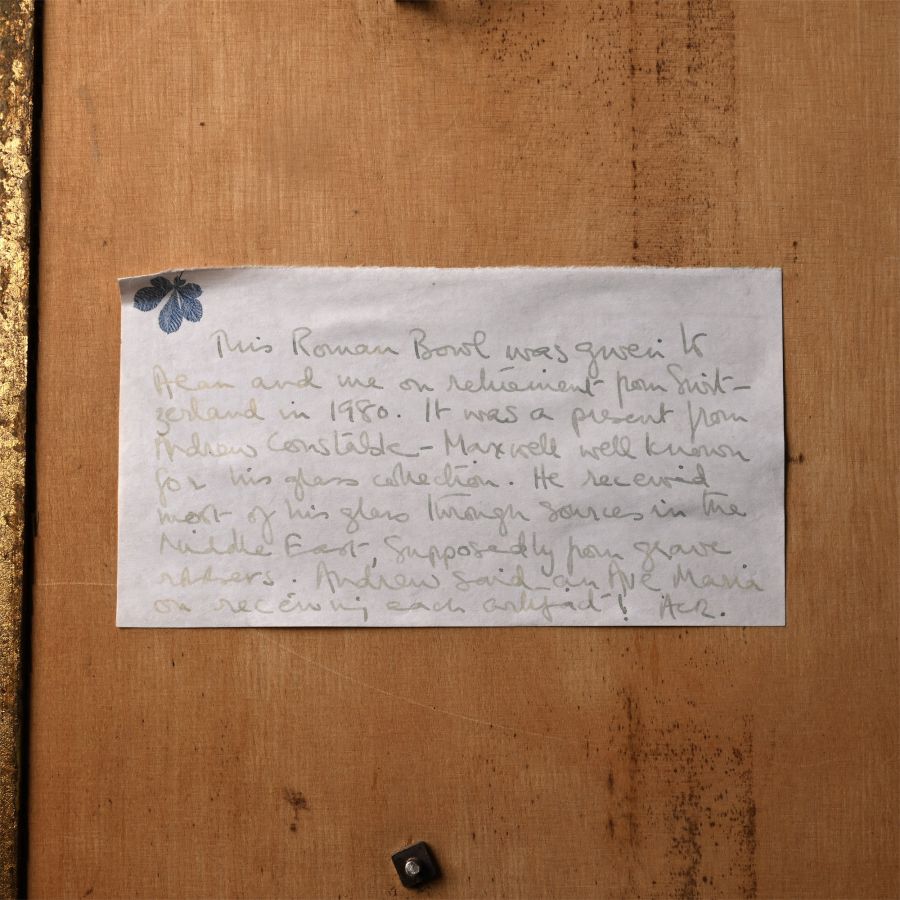 This Roman Bowl was given to
Alan and me on retirement from Swit-
zerland in 1980. It was a present from
Andrew Constable-Maxwell well known
for his glass collection. He received
most of his glass through sources in the
Middle East, supposedly from grave
robbers. Andrew said an Ave Maria
on receiving each artifact! ACR.